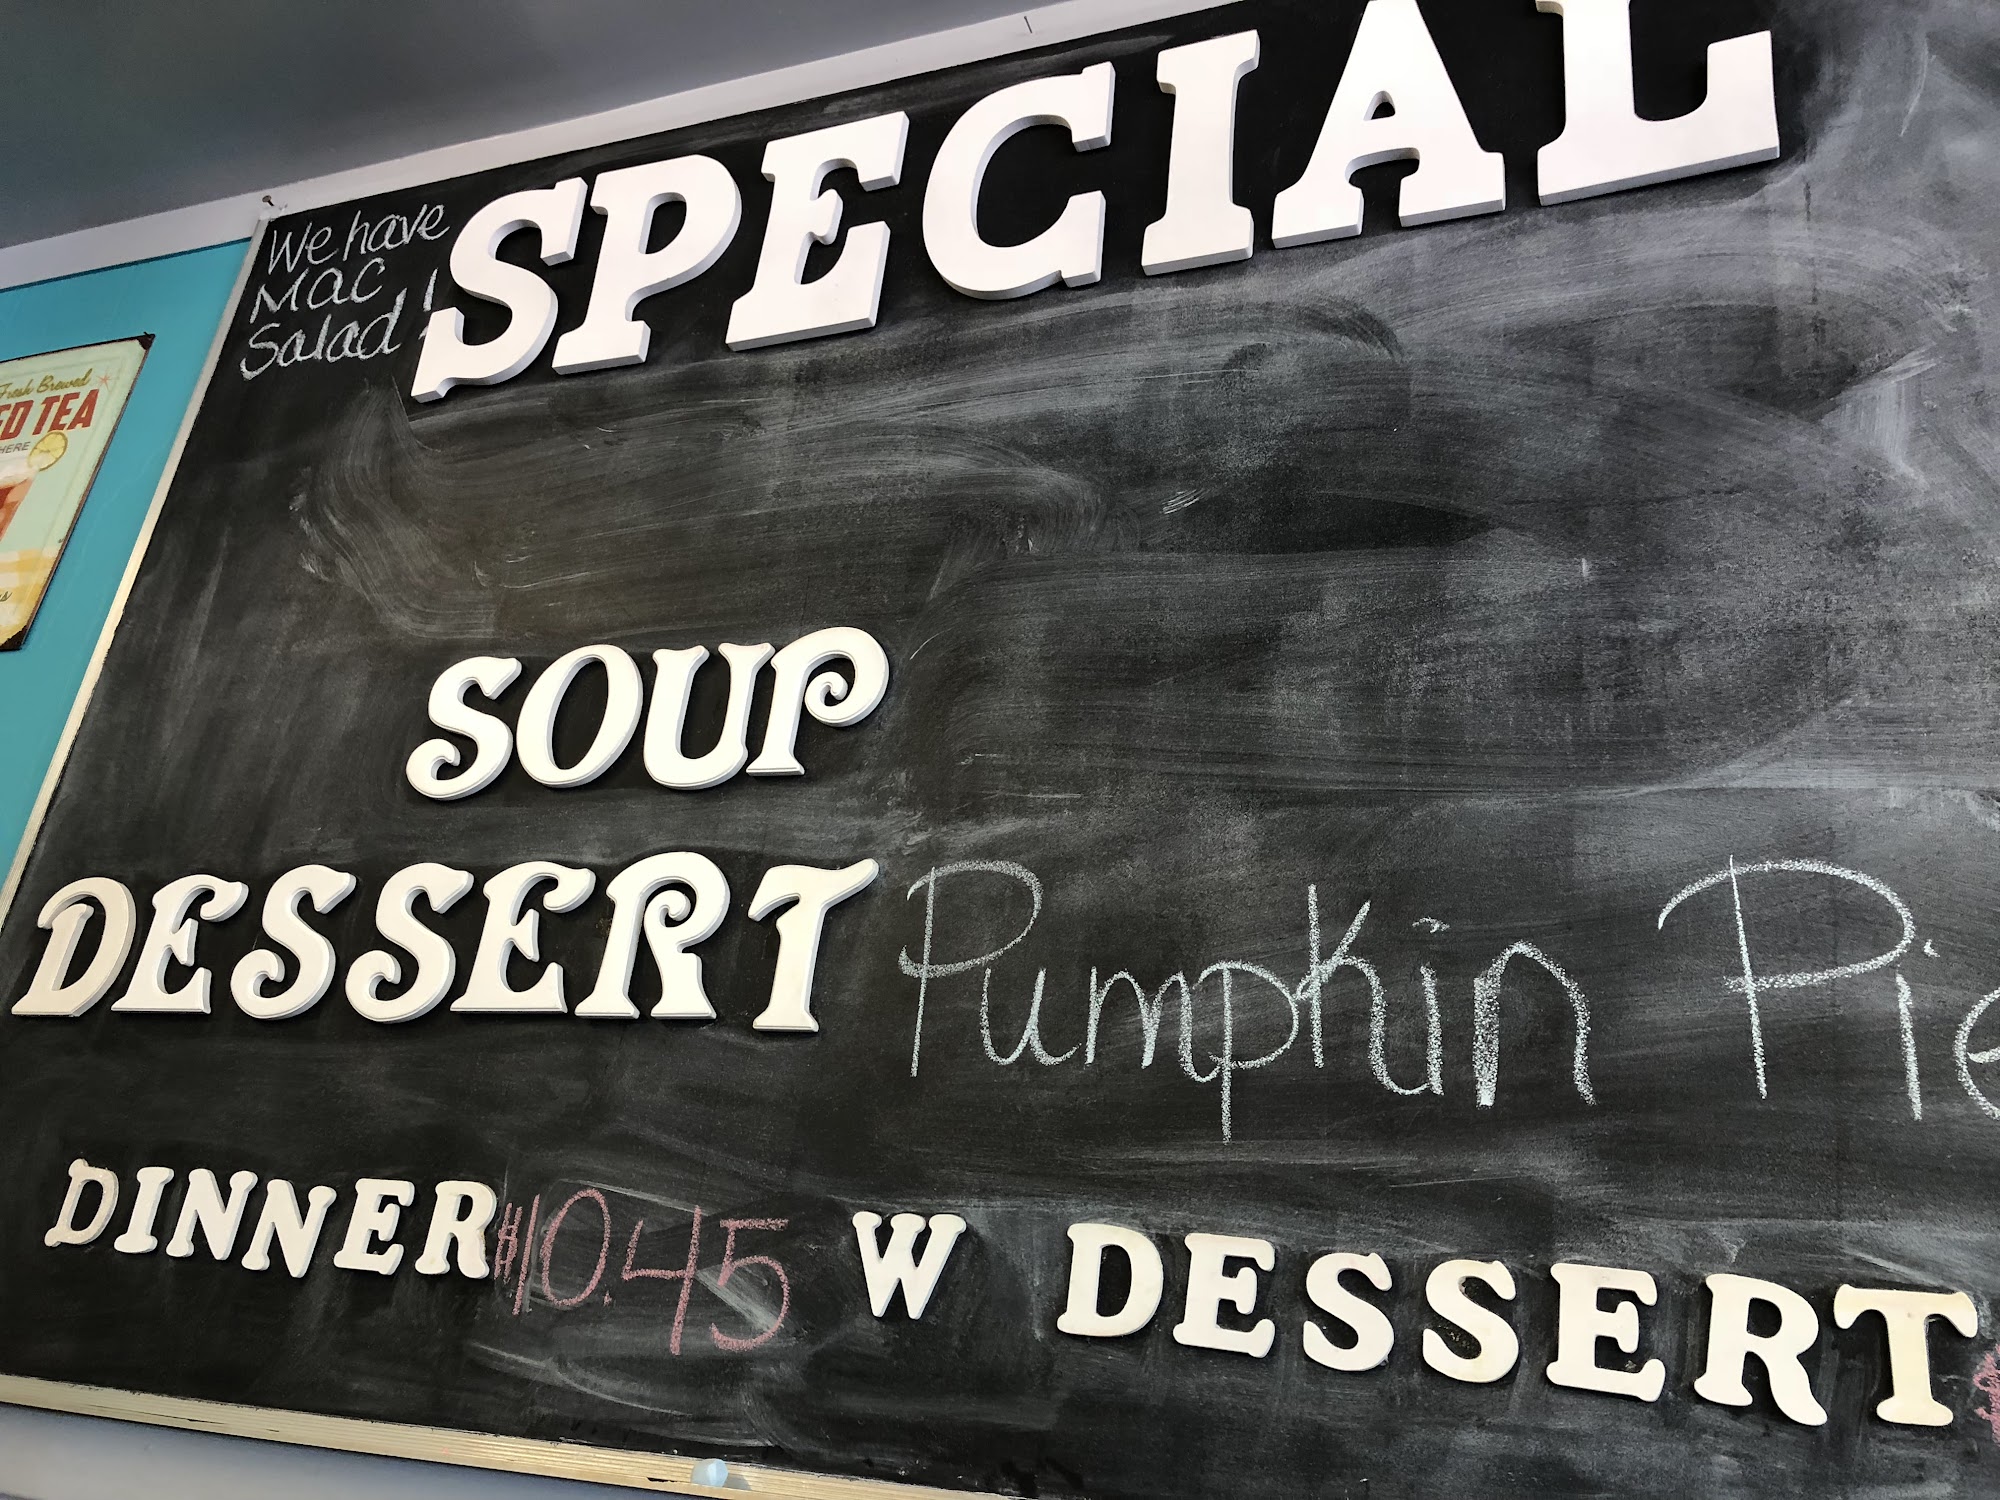 SPECIAL
We have
Mac
Salad!
Fresh Brewed
ED TEA
HERE
SOUP
DESSERT Pumpkin Pie
DINNER $10.45 W DESSERT $